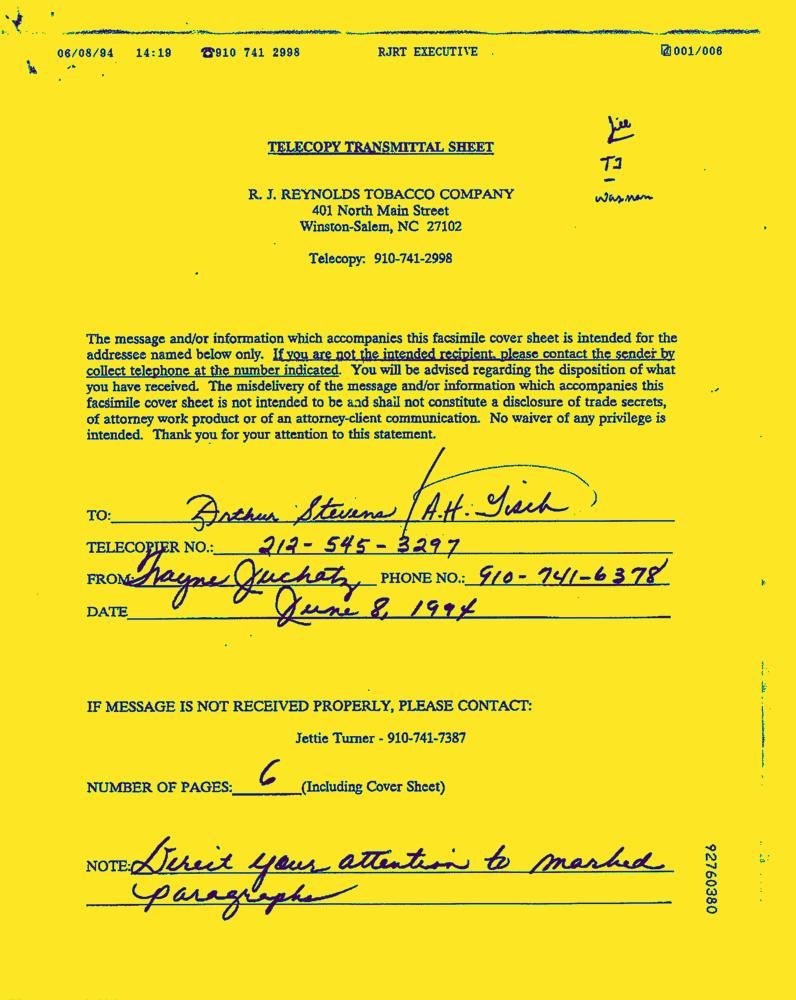 06/08/94 14:19 ☎910 741 2998 RJRT EXECUTIVE 001/006
Jill
TJ
TELECOPY TRANSMITTAL SHEET
R. J. REYNOLDS TOBACCO COMPANY
401 North Main Street
Winston-Salem, NC 27102
Telecopy: 910-741-2998
The message and/or information which accompanies this facsimile cover sheet is intended for the
addressee named below only. If you are not the intended recipient, please contact the sender by
collect telephone at the number indicated. You will be advised regarding the disposition of what
you have received. The misdelivery of the message and/or information which accompanies this
facsimile cover sheet is not intended to be and shall not constitute a disclosure of trade secrets,
of attorney work product or of an attorney-client communication. No waiver of any privilege is
intended. Thank you for your attention to this statement.
TO: Arthur Stevens / A.H. Tisch
TELECOPIER NO.: 212-545-3297
FROM: Wayne Juchatz PHONE NO.: 910-741-6378
DATE June 8, 1994
IF MESSAGE IS NOT RECEIVED PROPERLY, PLEASE CONTACT:
Jettie Turner - 910-741-7387
NUMBER OF PAGES: 6 (Including Cover Sheet)
NOTE: Direct your attention to marked
paragraphs
92760380